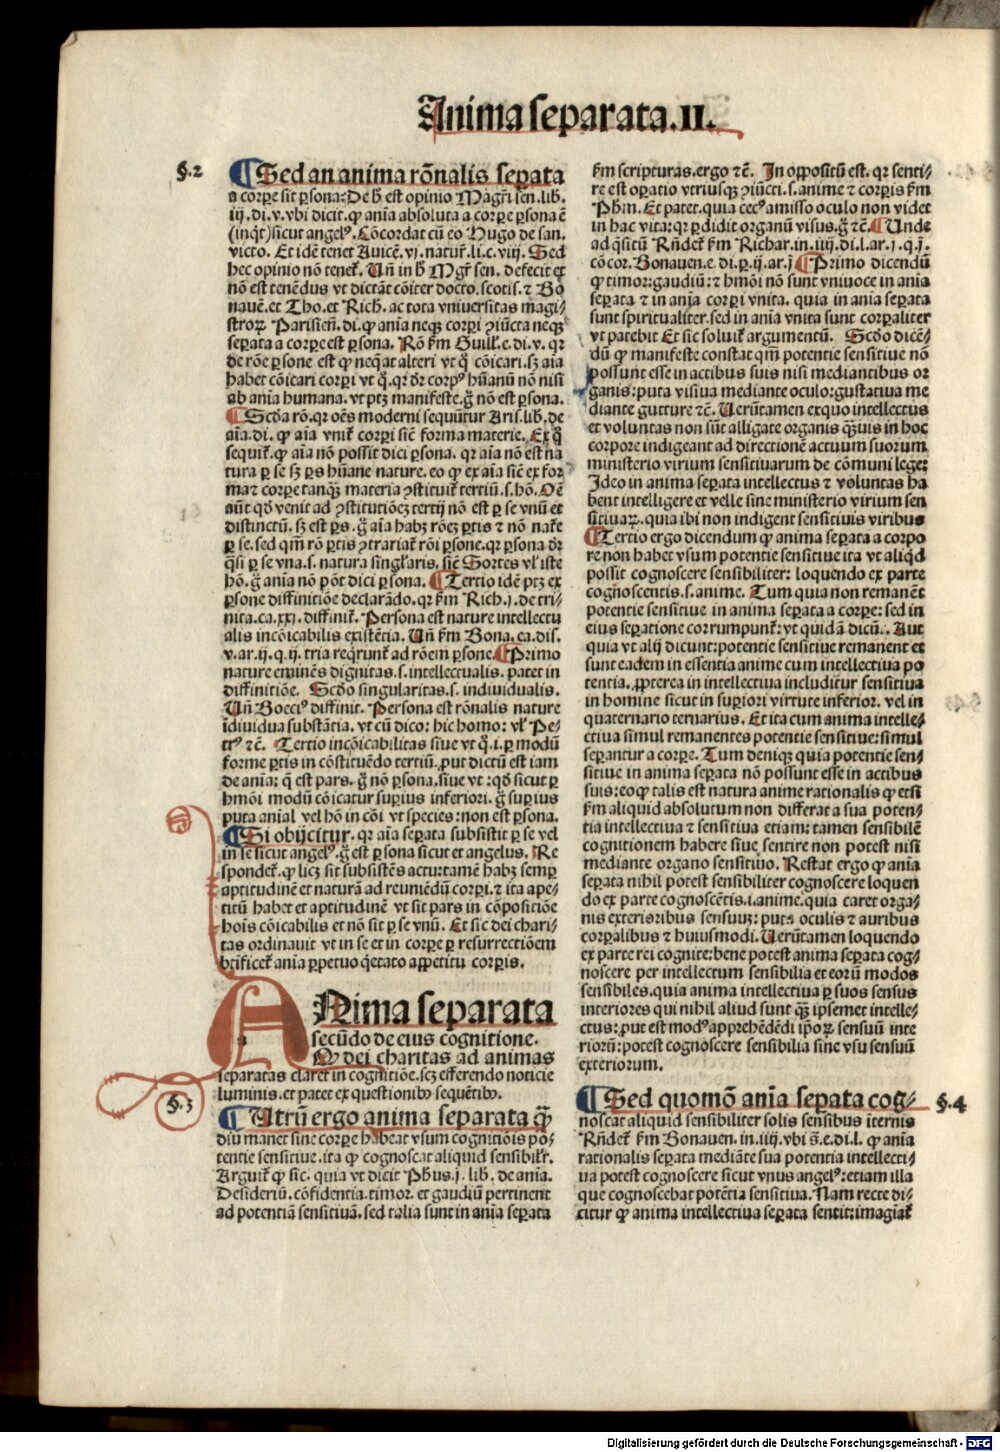 Anima separata.II.
§.2
¶Sed an anima rõnalis sepata
a corpe sit psona: De h est opinio Magr̃i sen̄. lib.
iij. di. v. vbi dicit. ꝙ aīa absoluta a corpe psona ē
(inq̄t) sicut angelꝰ. Cõcordat cũ eo Hugo de san.
victo. Et idē tenet Auicē. vj. natur̃. li. c. viij. Sed
hec opinio nõ teneť. Un̄ in h Mgr̃ sen. defecit ex
nõ est tenēdus vt dictāt cõiter docto. scotis. ⁊ Bo
nauē. et Tho. et Rich. ac tota vniuersitas magi-
stroꝝ Parisieñ. di. ꝙ aīa neqꝫ corpi ꝯiũcta neqꝫ
sepata a corpe est psona. Rõ ẜm Guilł. e. di. v. qr
de rõne psone est ꝙ neq̄at alteri vt q̊ cõicari. sꝫ aīa
habet cõicari corpi vt q̊. qr dr̃ corpꝰ hũanũ nõ nisi
ab anīa humana. vt ptꝫ manifeste. g̊ nõ est psona.
¶Scđa rõ. qr oēs moderni sequũtur Aris. lib. de
aīa. di. ꝙ aīa vniť corpi sic̃ forma materie. Ex q̊
sequiť. ꝙ aīa nõ possit dici psona. qr aīa nõ est na
tura p se sꝫ ps hũane nature. eo ꝙ ex aīa sic̃ ex for
ma ⁊ corpe tanq̄ꝫ materia ꝯstituiť tertiũ. s. hõ. Oē
aũt qđ venit ad ꝯstitutiõeꝫ tertij nõ est p se vnũ et
distinctũ. sꝫ est ps. g̊ aīa habꝫ rõeꝫ ptis ⁊ nõ naťe
p se. sed qm̃ rõ ptis ꝯtrariať rõi psone. qr psona dr̃
q̄si p se vna. s. natura singl̃aris. sic̃ Sortes vl̃ iste
hõ. g̊ anīa nõ põt dici psona. ¶Tertio idē ptꝫ ex
psone diffinitiõe declarādo. qr ẜm Rich. j. de tri-
nita. ca. xxj. diffiniť. Persona est nature intellectu
alis incõicabilis existētia. Un̄ ẜm Bona. ea. dis.
v. ar. ij. q. ij. tria reqrunť ad rõem psone. ¶Primo
nature eminēs dignitas. s. intellectualis. patet in
diffinitiõe. Scđo singularitas. s. indiuidualis.
Un̄ Boeciꝰ diffinit. Persona est rõnalis nature
īdiuidua substātia. vt cũ dico: hic homo: vl̃ Pe-
trꝰ ⁊c̃. Tertio incõicabilitas siue vt q̊. i. p modũ
forme ptis in cõstituēdo tertiũ. ꝓut dictũ est iam
de anīa: q̄ est pars. g̊ nõ psona. siue vt: qđ sicut p
hmõi modũ cõicatur supius inferiori. g̊ supius
puta anial vel hõ in cõi vt species: non est psona.
¶Si obijcitur. qr aīa sepata subsistit p se vel
in se sicut angelꝰ. g̊ est psona sicut et angelus. Re
spondeť. ꝙ licꝫ sit subsistēs actu: tamē habꝫ semp
aptitudinē et naturā ad reuniēdũ corpi. ⁊ ita ape-
titũ habet et aptitudinē vt sit pars in cõpositiõe
hoīs cõicabilis et nõ sit p se vnũ. Et sic dei chari-
tas ordinauit vt in se et in corpe p resurrectiõem
btīficeť anīa ppetuo q̄etato appetitu corpis.
ANima separata
secũdo de eius cognitione.
Q dei charitas ad animas
separatas claret in cognitiõe. scꝫ efferendo noticie
luminis. et patet ex questionibꝫ sequētibꝫ.
§.3
¶Utrũ ergo anima separata q̄
diu manet sine corpe habeat vsum cognitiõis po-
tentie sensitiue. ita ꝙ cognoscat aliquid sensibiľr.
Arguiť ꝙ sic. quia vt dicit Phus. j. lib. de anīa.
Desideriũ. cõfidentia. timor. et gaudiũ pertinent
ad potentiā sensitiuā. sed talia sunt in anīa sepata
ẜm scripturas. ergo ⁊c̃. In oppositũ est. qr senti-
re est opatio vtriusqꝫ ꝯiũcti. s. anime ⁊ corpis ẜm
Phm. Et patet. quia cecꝰ amisso oculo non videt
in hac vita: qr pdidit organũ visus. g̊ ⁊c̃. ¶Unde
ad q̄sitũ Rñdeť ẜm Richar. in. iiij. di. l. ar. j. q. j.
cõcor. Bonauen. e. di. p. ij. ar. j ¶Primo dicendũ
ꝙ timor: gaudiũ: ⁊ hmõi nõ sunt vniuoce in anīa
sepata ⁊ in anīa corpi vnita. quia in anīa sepata
sunt spiritualiter. sed in anīa vnita sunt corpaliter
vt patebit Et sic soluiť argumentũ. Scđo dicē-
dũ ꝙ manifeste constat qm̃ potentie sensitiue nõ
possunt esse in actibus suis nisi mediantibus or
ganis: puta visiua mediante oculo: gustatiua me
diante gutture ⁊c̃. Uerũtamen exquo intellectus
et voluntas non sũt alligate organis q̄uis in hoc
corpore indigeant ad directionē actuum suorum
ministerio virium sensitiuarum de cõmuni lege:
Ideo in anima sepata intellectus ⁊ voluntas ha
bent intelligere et velle sine ministerio virium sen
sitiuaꝝ. quia ibi non indigent sensitiuis viribus
¶Tertio ergo dicendum ꝙ anima sepata a corpo
re non habet vsum potentie sensitiue ita vt aliq̄d
possit cognoscere sensibiliter: loquendo ex parte
cognoscentis. s. anime. Tum quia non remanēt
potentie sensitiue in anima sepata a corpe: sed in
eius sepatione corrumpunť: vt quidā dicũt. Aut
quia vt alij dicunt: potentie sensitiue remanent et
sunt eadem in essentia anime cum intellectiua po
tentia. ꝓpterea in intellectiua includitur sensitiua
in homine sicut in supiori virtute inferior. vel in
quaternario ternarius. Et ita cum anima intelle-
ctiua simul remanentes potentie sensitiue: simul
sepantur a corpe. Tum denique quia potentie sen-
sitiue in anima sepata nõ possunt esse in actibus
suis: eoꝙ talis est natura anime rationalis ꝙ etsi
ẜm aliquid absolutum non differat a sua poten-
tia intellectiua ⁊ sensitiua etiam: tamen sensibilē
cognitionem habere siue sentire non potest nisi
mediante organo sensitiuo. Restat ergo ꝙ anīa
sepata nihil potest sensibiliter cognoscere loquen
do ex parte cognoscētis. i. anime. quia caret orga-
nis exterioribus sensuuꝫ: puta oculis ⁊ auribus
corpalibus ⁊ huiusmodi. Uerũtamen loquendo
ex parte rei cognite: bene potest anima sepata cog-
noscere per intellectum sensibilia et eorũ modos
sensibiles. quia anima intellectiua p suos sensus
interiores qui nihil aliud sunt q̄ꝫ ipsemet intelle-
ctus: ꝓut est modꝰ apprehēdēdi ip̃oꝝ sensuũ inte
riorũ: potest cognoscere sensibilia sine vsu sensuũ
exteriorum.
¶Sed quomõ anīa sepata cog- §.4
noscat aliquid sensibiliter solis sensibus īternis
Rñdeť ẜm Bonauen. in. iiij. vbi s̄. e. di. l. ꝙ anīa
rationalis sepata mediāte sua potentia intellecti-
ua potest cognoscere sicut vnus angelꝰ: etiam illa
que cognoscebat potētia sensitiua. Nam recte di-
citur ꝙ anima intellectiua sepata sentit: imagiať
Digitalisierung gefördert durch die Deutsche Forschungsgemeinschaft - DFG